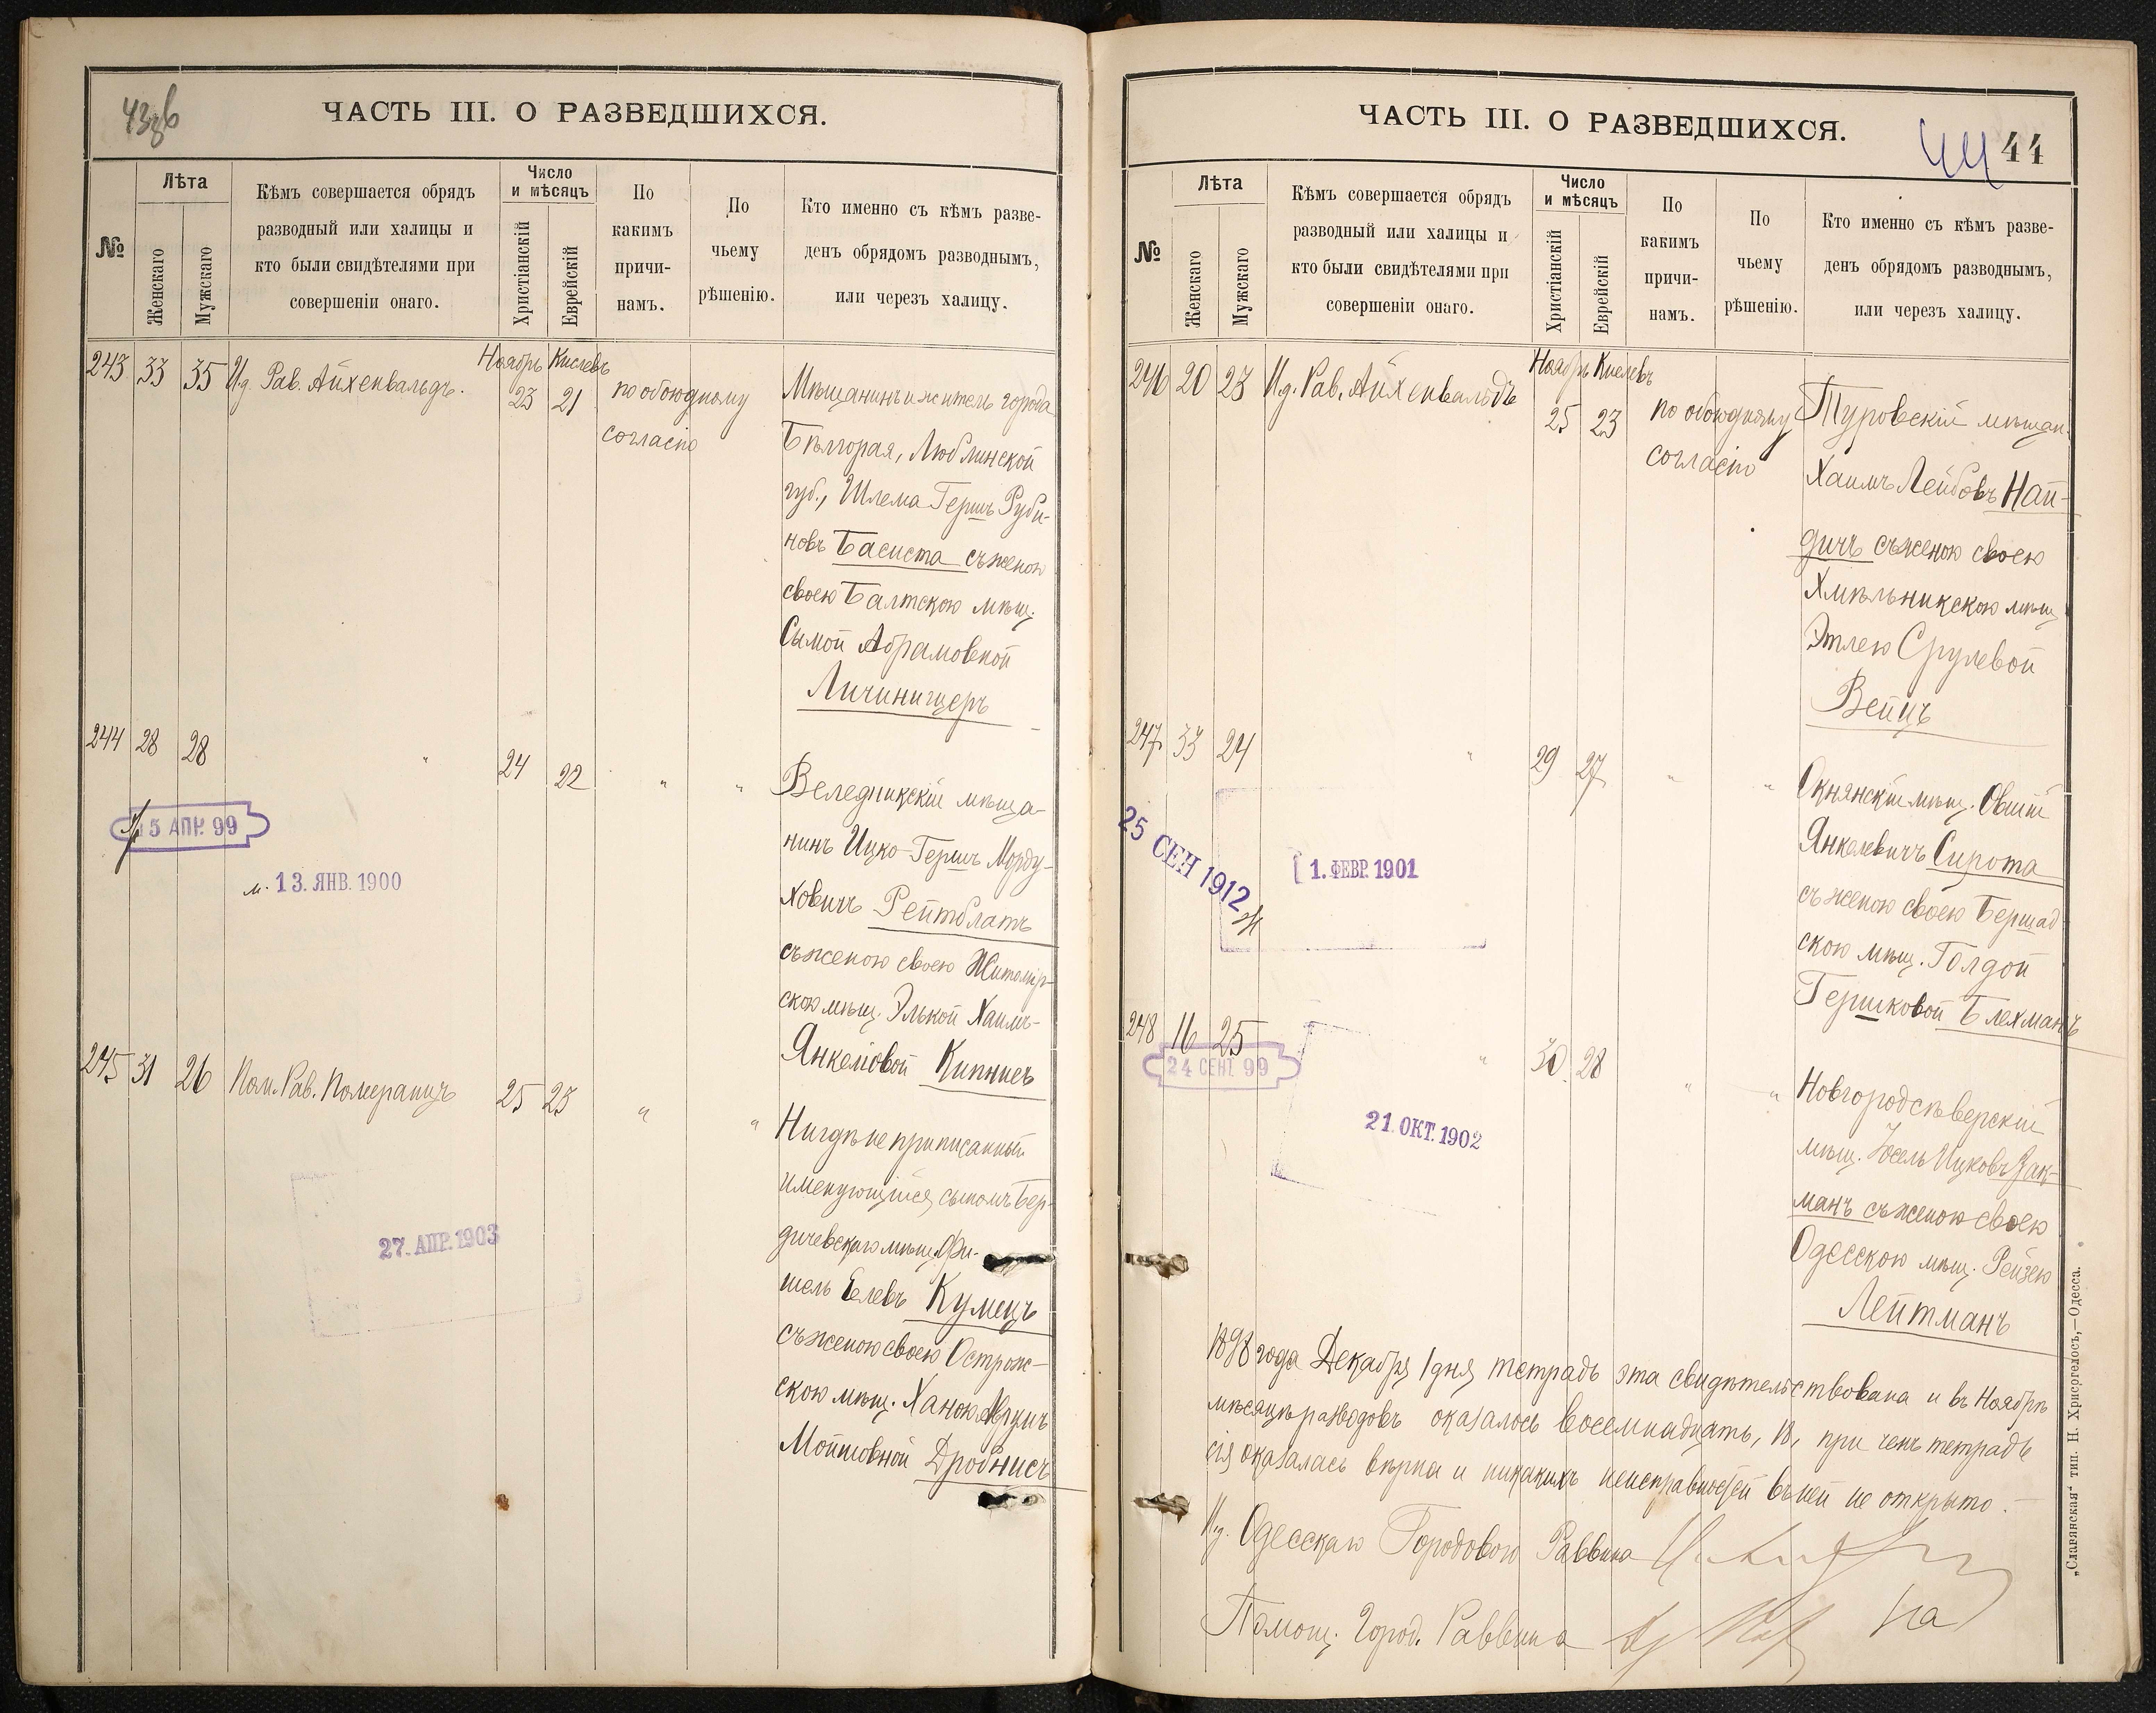 43об
ЧАСТЬ III. О РАЗВЕДШИХСЯ.
№
Лѣта
Женскаго
Мужскаго
Кѣмъ совершается обрядъ
разводный или халицы и
кто были свидѣтелями при
совершеніи онаго.
Число
и мѣсяцъ
Христіанскій
Еврейскій
По
какимъ
причи-
намъ.
По
чьему
рѣшенію.
Кто именно съ кѣмъ разве-
денъ обрядомъ разводнымъ,
или черезъ халицу.
243 33 35 И.д. Рав. Айхенвальдъ. Ноябрь 23 Кислевъ 21 по обоюдному
согласію
Мѣщанинъ и житель города
Бѣлгорая, Люблинской
губ., Шлема Гершъ Руби-
новъ Басиста съ женою
своею Балтскою мѣщ.
Сымой Абрамовной
Личиницеръ
244 28 28 " 24 22 " "
Веледникскій мѣща-
нинъ Ицко-Гершъ Морду-
ховичъ Рейтблатъ
съ женою своею Житомір-
скою мѣщ. Элькой Хаимъ-
Янкеліовой Кипнисъ
15 АПР. 99
м. 13. ЯНВ. 1900
245 31 26 Пом. Рав. Померанцъ 25 23 " "
Нигдѣ не приписанный
именующійся сыномъ Бер-
дичевскаго мѣщ. Фи-
шель Елевъ Кумецъ
съ женою своею Острож-
скою мѣщ. Ханою
Мошковной Дробнисъ
27. АПР. 1903
ЧАСТЬ III. О РАЗВЕДШИХСЯ.
44 44
№
Лѣта
Женскаго
Мужскаго
Кѣмъ совершается обрядъ
разводный или халицы и
кто были свидѣтелями при
совершеніи онаго.
Число
и мѣсяцъ
Христіанскій
Еврейскій
По
какимъ
причи-
намъ.
По
чьему
рѣшенію.
Кто именно съ кѣмъ разве-
денъ обрядомъ разводнымъ,
или черезъ халицу.
246 20 23 И.д. Рав. Айхенвальдъ Ноябрь 25 Кислевъ 23 по обоюдному
согласію
Туровскій мѣщан.
Хаимъ Лейбовъ Най-
дичъ съ женою своею
Хмѣльникскою мѣщ
Этлею Срулевой
Вейцъ
247 33 24 " 29 27 " "
Окнянскій мѣщ. Овшій
Янкелевичъ Сирота
съ женою своею Бершад-
скою мѣщ. Голдой
Гершковой Блехманъ
25 СЕН 1912 ж
1. ФЕВР. 1901
248 16 25 " 30 28 " "
Новгородсѣверскій
мѣщ. Іосель Ицковъ Зак-
манъ съ женою своею
Одесскою мѣщ. Рейзею
Лейтманъ
24 СЕНТ. 99
21. ОКТ. 1902
1898 года Декабря 1 дня тетрадь эта свидѣтельствована и въ Ноябрѣ
мѣсяцѣ разводовъ оказалось восемнадцать, 18, при чемъ тетрадь
сія оказалась вѣрна и никакихъ неисправностей въ ней не открыто.
И.д. Одесскаго Городового Раввина
Помощ. Город. Раввина
„Славянская“ тип. Н. Хрисогелосъ,—Одесса.